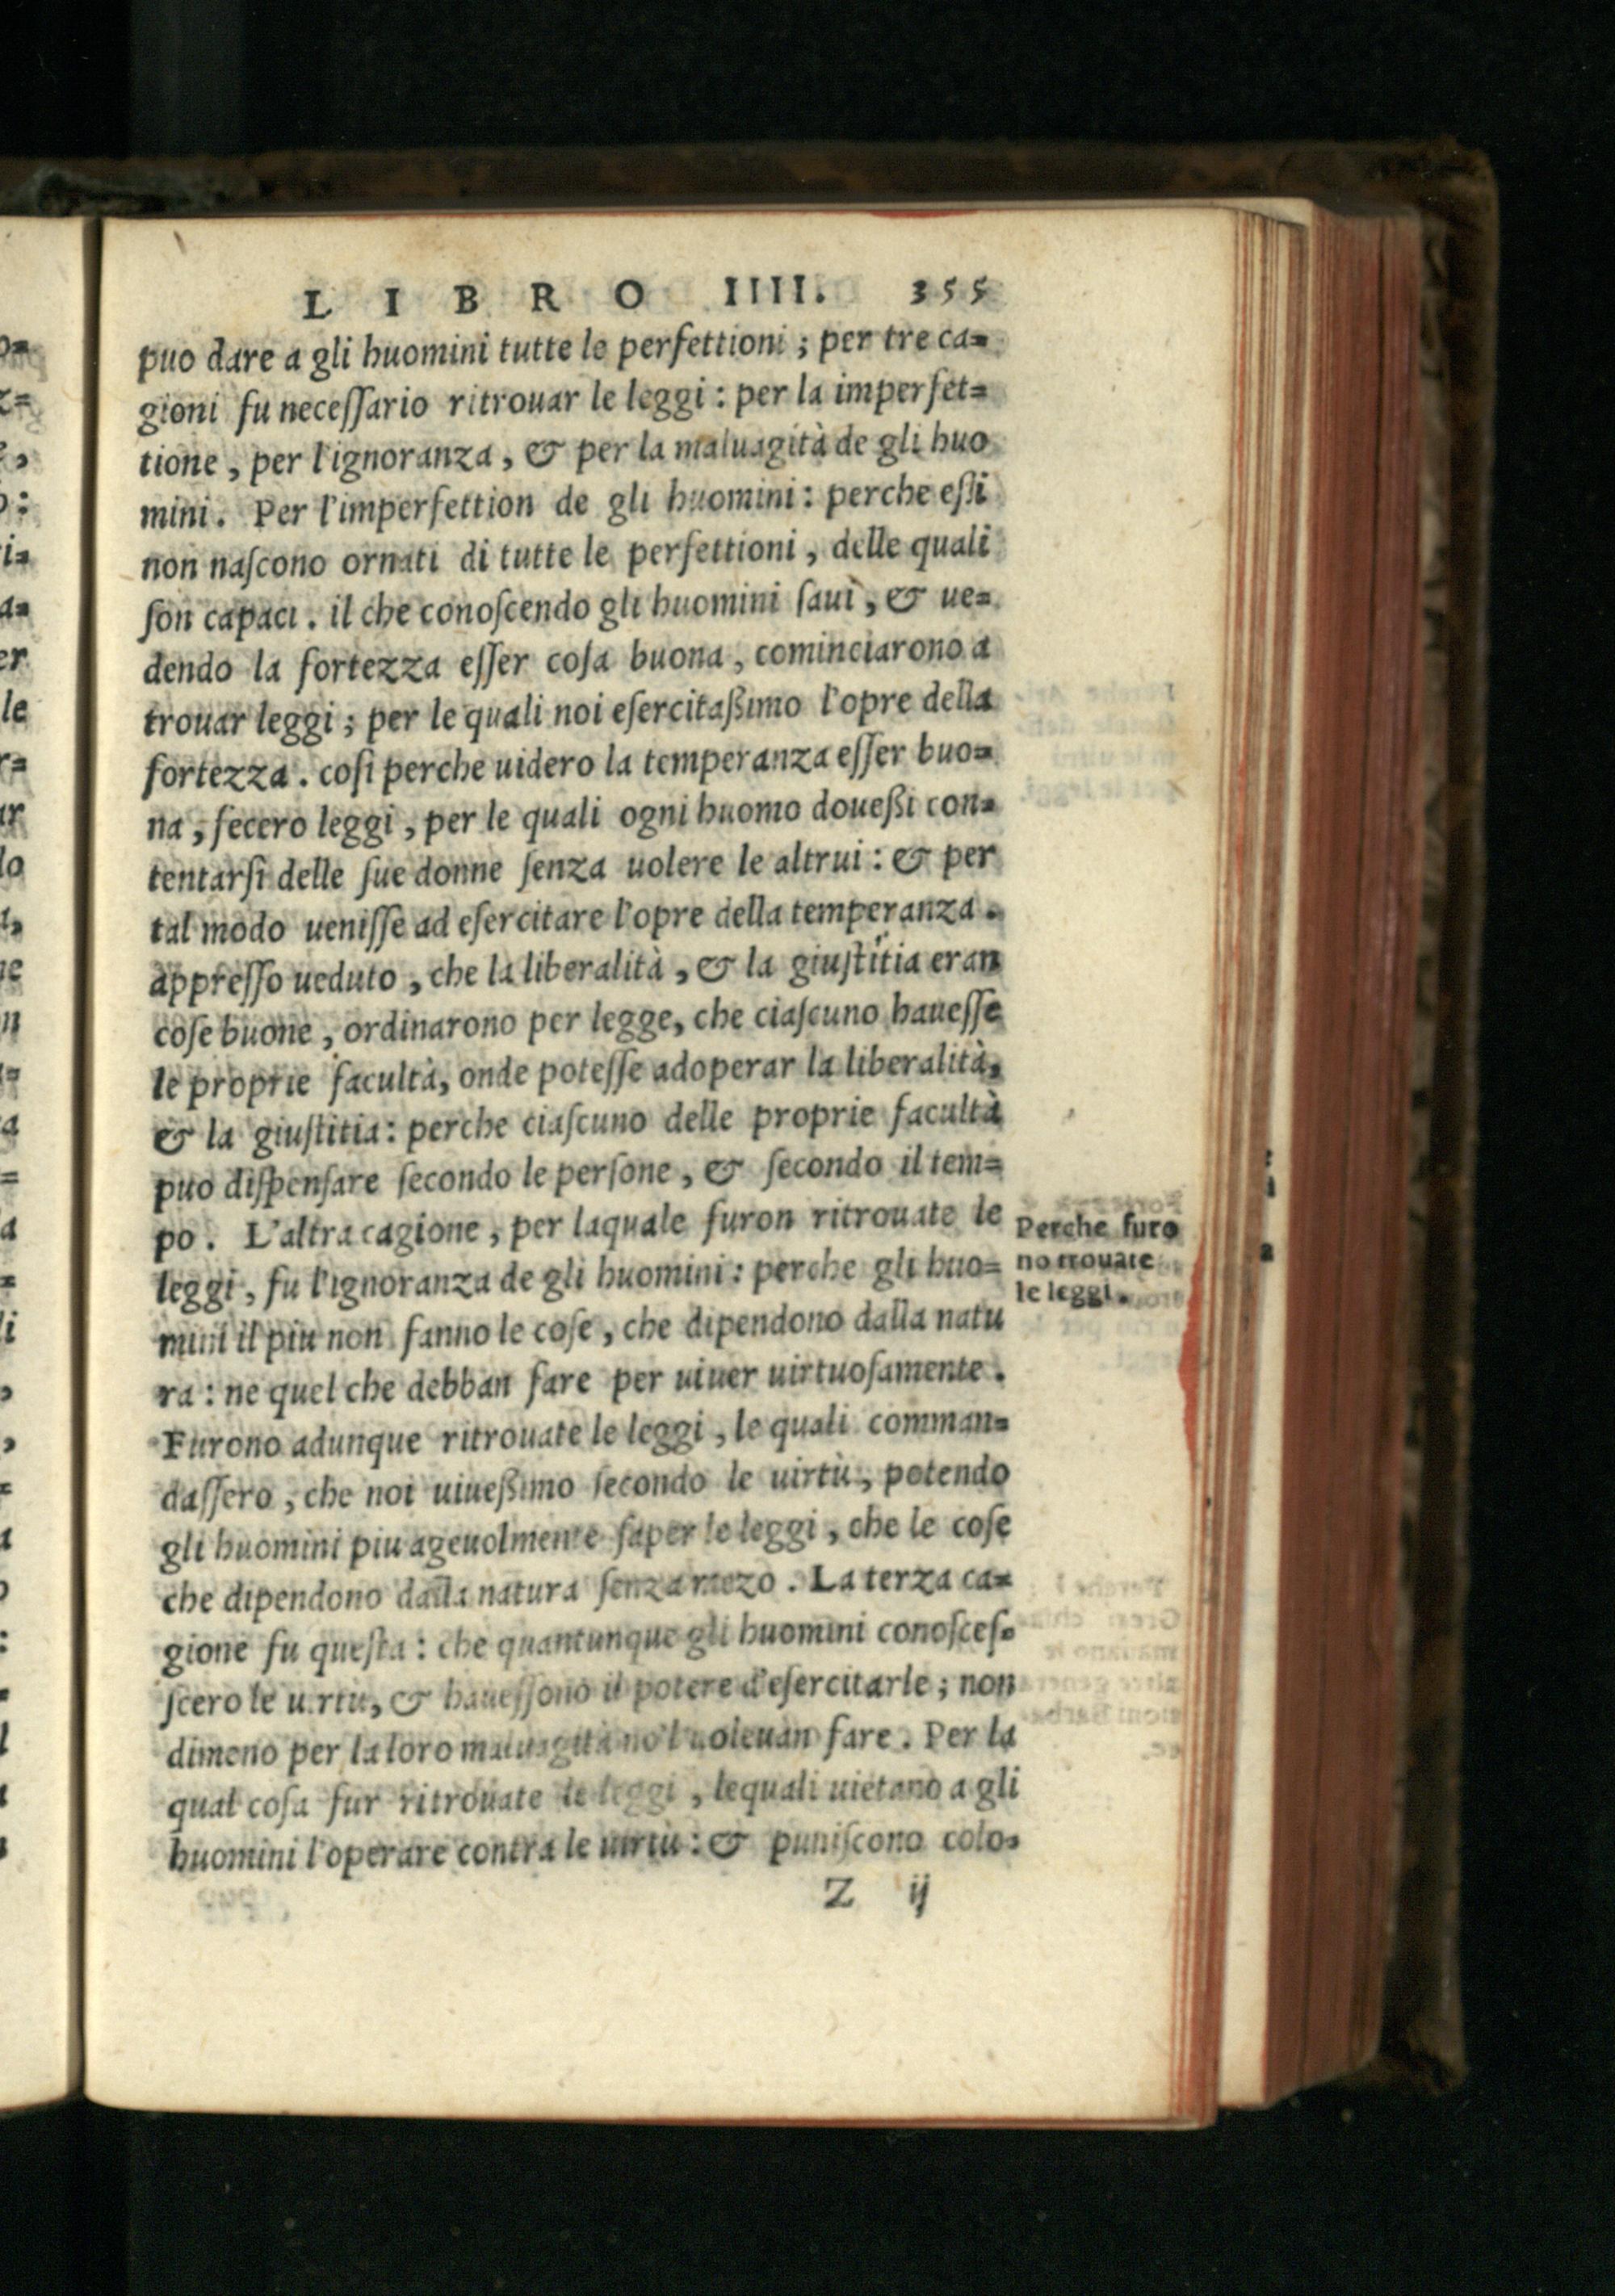 LIBRO IIII. 355
puo dare a gli huomini tutte le perfettioni; per tre ca=
gioni fu neceſſario ritrouar le leggi: per la imperfet=
tione, per l'ignoranza, & per la maluagità de gli huo
mini. Per l'imperfettion de gli huomini: perche eſſi
non naſcono ornati di tutte le perfettioni, delle quali
ſon capaci. il che conoſcendo gli huomini ſaui, & ue=
dendo la fortezza eſſer coſa buona, cominciarono a
trouar leggi; per le quali noi eſercitaßimo l'opre della
fortezza. coſi perche uidero la temperanza eſſer buo=
na, fecero leggi, per le quali ogni huomo doueßi con=
tentarſi delle ſue donne ſenza uolere le altrui: & per
tal modo ueniſſe ad eſercitare l'opre della temperanza.
appreſſo ueduto, che la liberalità, & la giuſtitia eran
coſe buone, ordinarono per legge, che ciaſcuno haueſſe
le proprie facultà, onde poteſſe adoperar la liberalità,
& la giuſtitia: perche ciaſcuno delle proprie facultà
puo diſpenſare ſecondo le perſone, & ſecondo il tem=
po. L'altra cagione, per laquale furon ritrouate le
leggi, fu l'ignoranza de gli huomini: perche gli huo=
mini il piu non ſanno le coſe, che dipendono dalla natu
ra: ne quel che debban fare per uiuer uirtuoſamente.
Furono adunque ritrouate le leggi, le quali comman=
daſſero, che noi uiueßimo ſecondo le uirtù, potendo
gli huomini piu ageuolmente ſaper le leggi, che le coſe
che dipendono dalla natura ſenza mezo. La terza ca=
gione fu queſta: che quantunque gli huomini conoſceſ=
ſcero le uirtù, & haueſſono il potere d'eſercitarle; non
dimeno per la loro maluagità no'l uoleuan fare. Per la
qual coſa fur ritrouate le leggi, lequali uietano a gli
huomini l'operare contra le uirtù: & puniſcono colo=
Z ij
Perche furo
no trouate
le leggi.